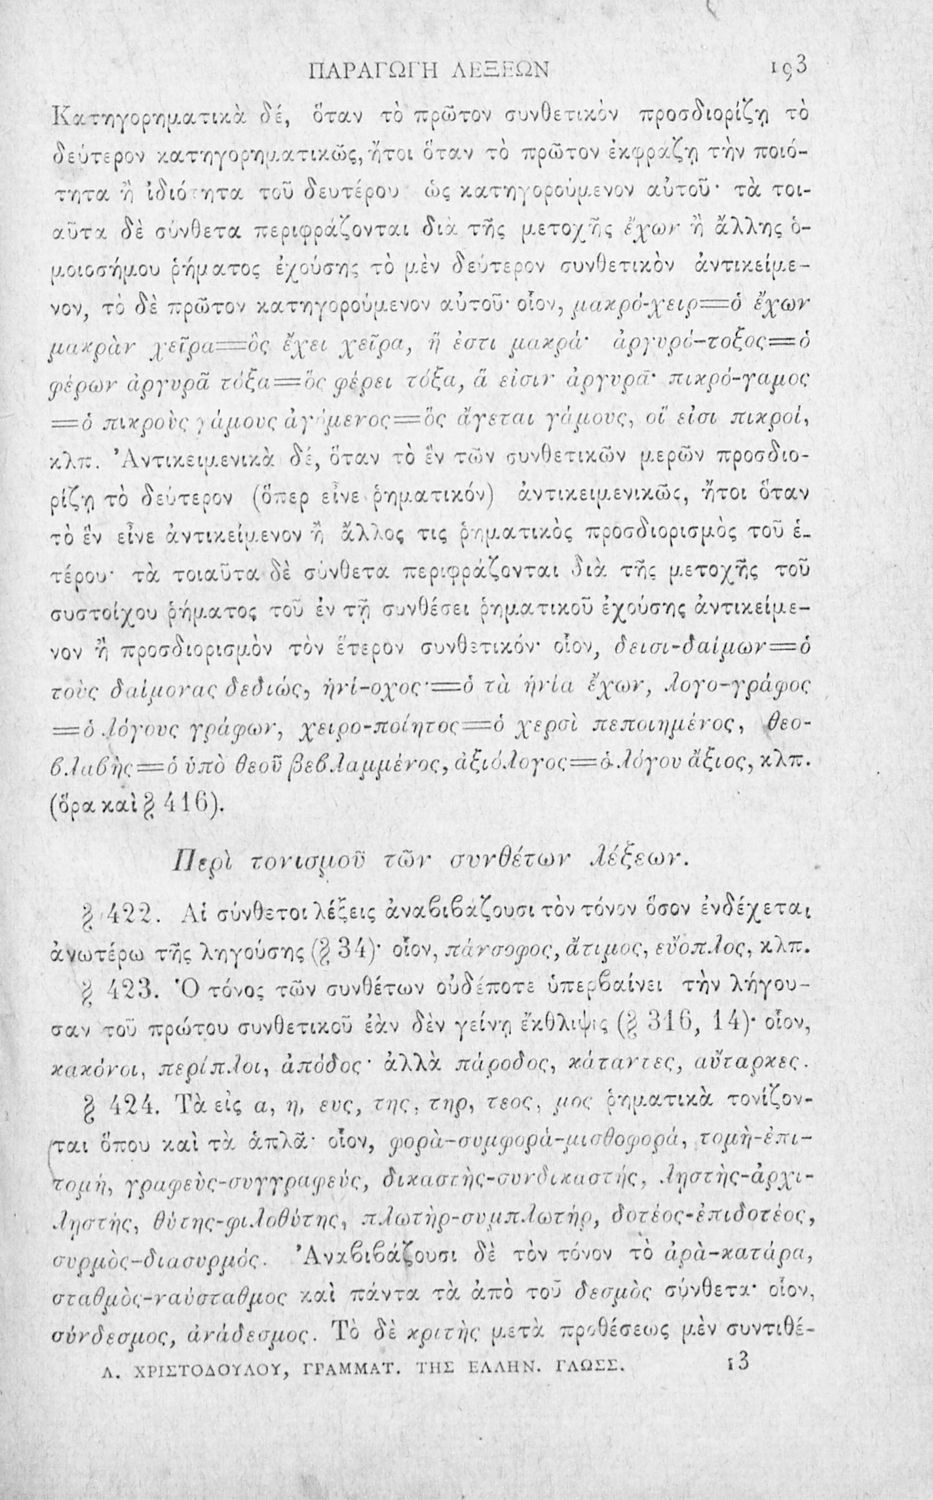 ΠΑΡΑΓΩΓΗ ΛΕΞΕΩΝ 193
Κατηγορηματικὰ δέ, ὅταν τὸ πρῶτον συνθετικὸν προσδιορίζῃ τὸ
δεύτερον κατηγορηματικῶς, ἤτοι ὅταν τὸ πρῶτον ἐκφράζῃ τὴν ποιό-
τητα ἢ ἰδιότητα τοῦ δευτέρου ὡς κατηγορούμενον αὐτοῦ· τὰ τοι-
αῦτα δὲ σύνθετα περιφράζονται διὰ τῆς μετοχῆς ἔχων ἢ ἄλλης ὁ-
μοιοσήμου ῥήματος ἐχούσης τὸ μὲν δεύτερον συνθετικὸν ἀντικείμε-
νον, τὸ δὲ πρῶτον κατηγορούμενον αὐτοῦ· οἷον, μακρό-χειρ=ὁ ἔχων
μακρὰν χεῖρα=ὃς ἔχει χεῖρα, ἥ ἐστι μακρά· ἀργυρό-τοξος=ὁ
φέρων ἀργυρᾶ τόξα=ὃς φέρει τόξα, ἅ εἰσιν ἀργυρᾶ· πικρό-γαμος
=ὁ πικροὺς γάμους ἀγόμενος=ὃς ἄγεται γάμους, οἵ εἰσι πικροί,
κλπ. Ἀντικειμενικὰ δέ, ὅταν τὸ ἓν τῶν συνθετικῶν μερῶν προσδιο-
ρίζῃ τὸ δεύτερον (ὅπερ εἶνε ῥηματικόν) ἀντικειμενικῶς, ἤτοι ὅταν
τὸ ἓν εἶνε ἀντικείμενον ἢ ἄλλος τις ῥηματικὸς προσδιορισμὸς τοῦ ἑ-
τέρου· τὰ τοιαῦτα δὲ σύνθετα περιφράζονται διὰ τῆς μετοχῆς τοῦ
συστοίχου ῥήματος τοῦ ἐν τῇ συνθέσει ῥηματικοῦ ἐχούσης ἀντικείμε-
νον ἢ προσδιορισμὸν τὸν ἕτερον συνθετικόν· οἷον, δεισι-δαίμων=ὁ
τοὺς δαίμονας δεδιώς, ἡνί-οχος=ὁ τὰ ἡνία ἔχων, λογο-γράφος
=ὁ λόγους γράφων, χειρο-ποίητος=ὁ χερσὶ πεποιημένος, θεο-
βλαβὴς=ὁ ὑπὸ θεοῦ βεβλαμμένος, ἀξιόλογος=ὁ λόγου ἄξιος, κλπ.
(ὅρα καὶ § 416).
Περὶ τονισμοῦ τῶν συνθέτων λέξεων.
§ 422. Αἱ σύνθετοι λέξεις ἀναβιβάζουσι τὸν τόνον ὅσον ἐνδέχεται
ἀνωτέρω τῆς ληγούσης (§ 34)· οἷον, πάνσοφος, ἄτιμος, εὔοπλος, κλπ.
§ 423. Ὁ τόνος τῶν συνθέτων οὐδέποτε ὑπερβαίνει τὴν λήγου-
σαν τοῦ πρώτου συνθετικοῦ ἐὰν δὲν γείνῃ ἔκθλιψις (§ 316, 14)· οἷον,
κακόνοι, περίπλοι, ἀπόδος· ἀλλὰ πάροδος, κάταντες, αὔταρκες.
§ 424. Τὰ εἰς α, η, ευς, της, τηρ, τεος, μος ῥηματικὰ τονίζον-
ται ὅπου καὶ τὰ ἁπλᾶ· οἷον, φορὰ-συμφορὰ-μισθοφορά, τομὴ-ἐπι-
τομή, γραφεὺς-συγγραφεύς, δικαστὴς-συνδικαστής, ληστὴς-ἀρχι-
ληστής, θύτης-φιλοθύτης, πλωτὴρ-συμπλωτήρ, δοτέος-ἐπιδοτέος,
συρμὸς-διασυρμός. Ἀναβιβάζουσι δὲ τὸν τόνον τὸ ἀρὰ-κατάρα,
σταθμὸς-ναύσταθμος καὶ πάντα τὰ ἀπὸ τοῦ δεσμὸς σύνθετα· οἷον,
σύνδεσμος, ἀνάδεσμος. Τὸ δὲ κριτὴς μετὰ προθέσεως μὲν συντιθέ-
Λ. ΧΡΙΣΤΟΔΟΥΛΟΥ, ΓΡΑΜΜΑΤ. ΤΗΣ ΕΛΛΗΝ. ΓΛΩΣΣ. 13